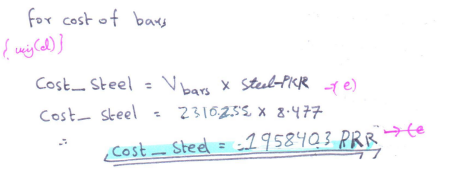 for cost of bars
{ using(d)}
Cost_Steel = Vbars x Steel-PKR → e)
Cost_ Steel = 2310255 x 8.477
∴ Cost_ Steel = 1958403 PRR → (e